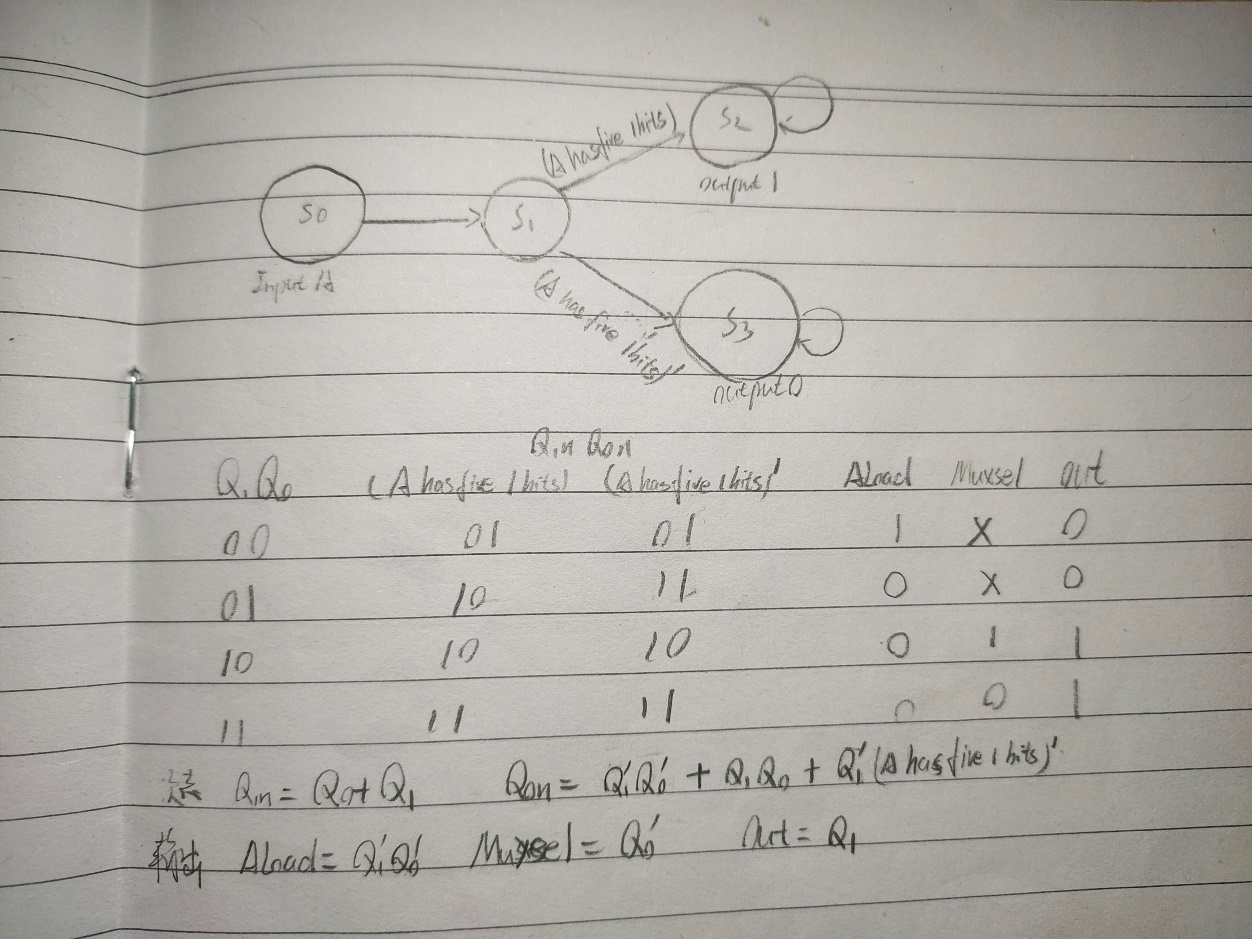 (A has five 1 bits) S2
output 1
S0 S1
Input A
(A has five 1 bits)' S3
output 0
Q1n Q0n
Q1 Q0 (A has five 1 bits) (A has five 1 bits)' ALoad Muxsel out
00 01 01 1 X 0
01 10 11 0 X 0
10 10 10 0 1 1
11 11 11 0 0 1
Q1n = Q0 + Q1 Q0n = Q1'Q0' + Q1Q0 + Q1'(A has five 1 bits)'
输出 ALoad = Q1'Q0' Muxsel = Q0' Out = Q1